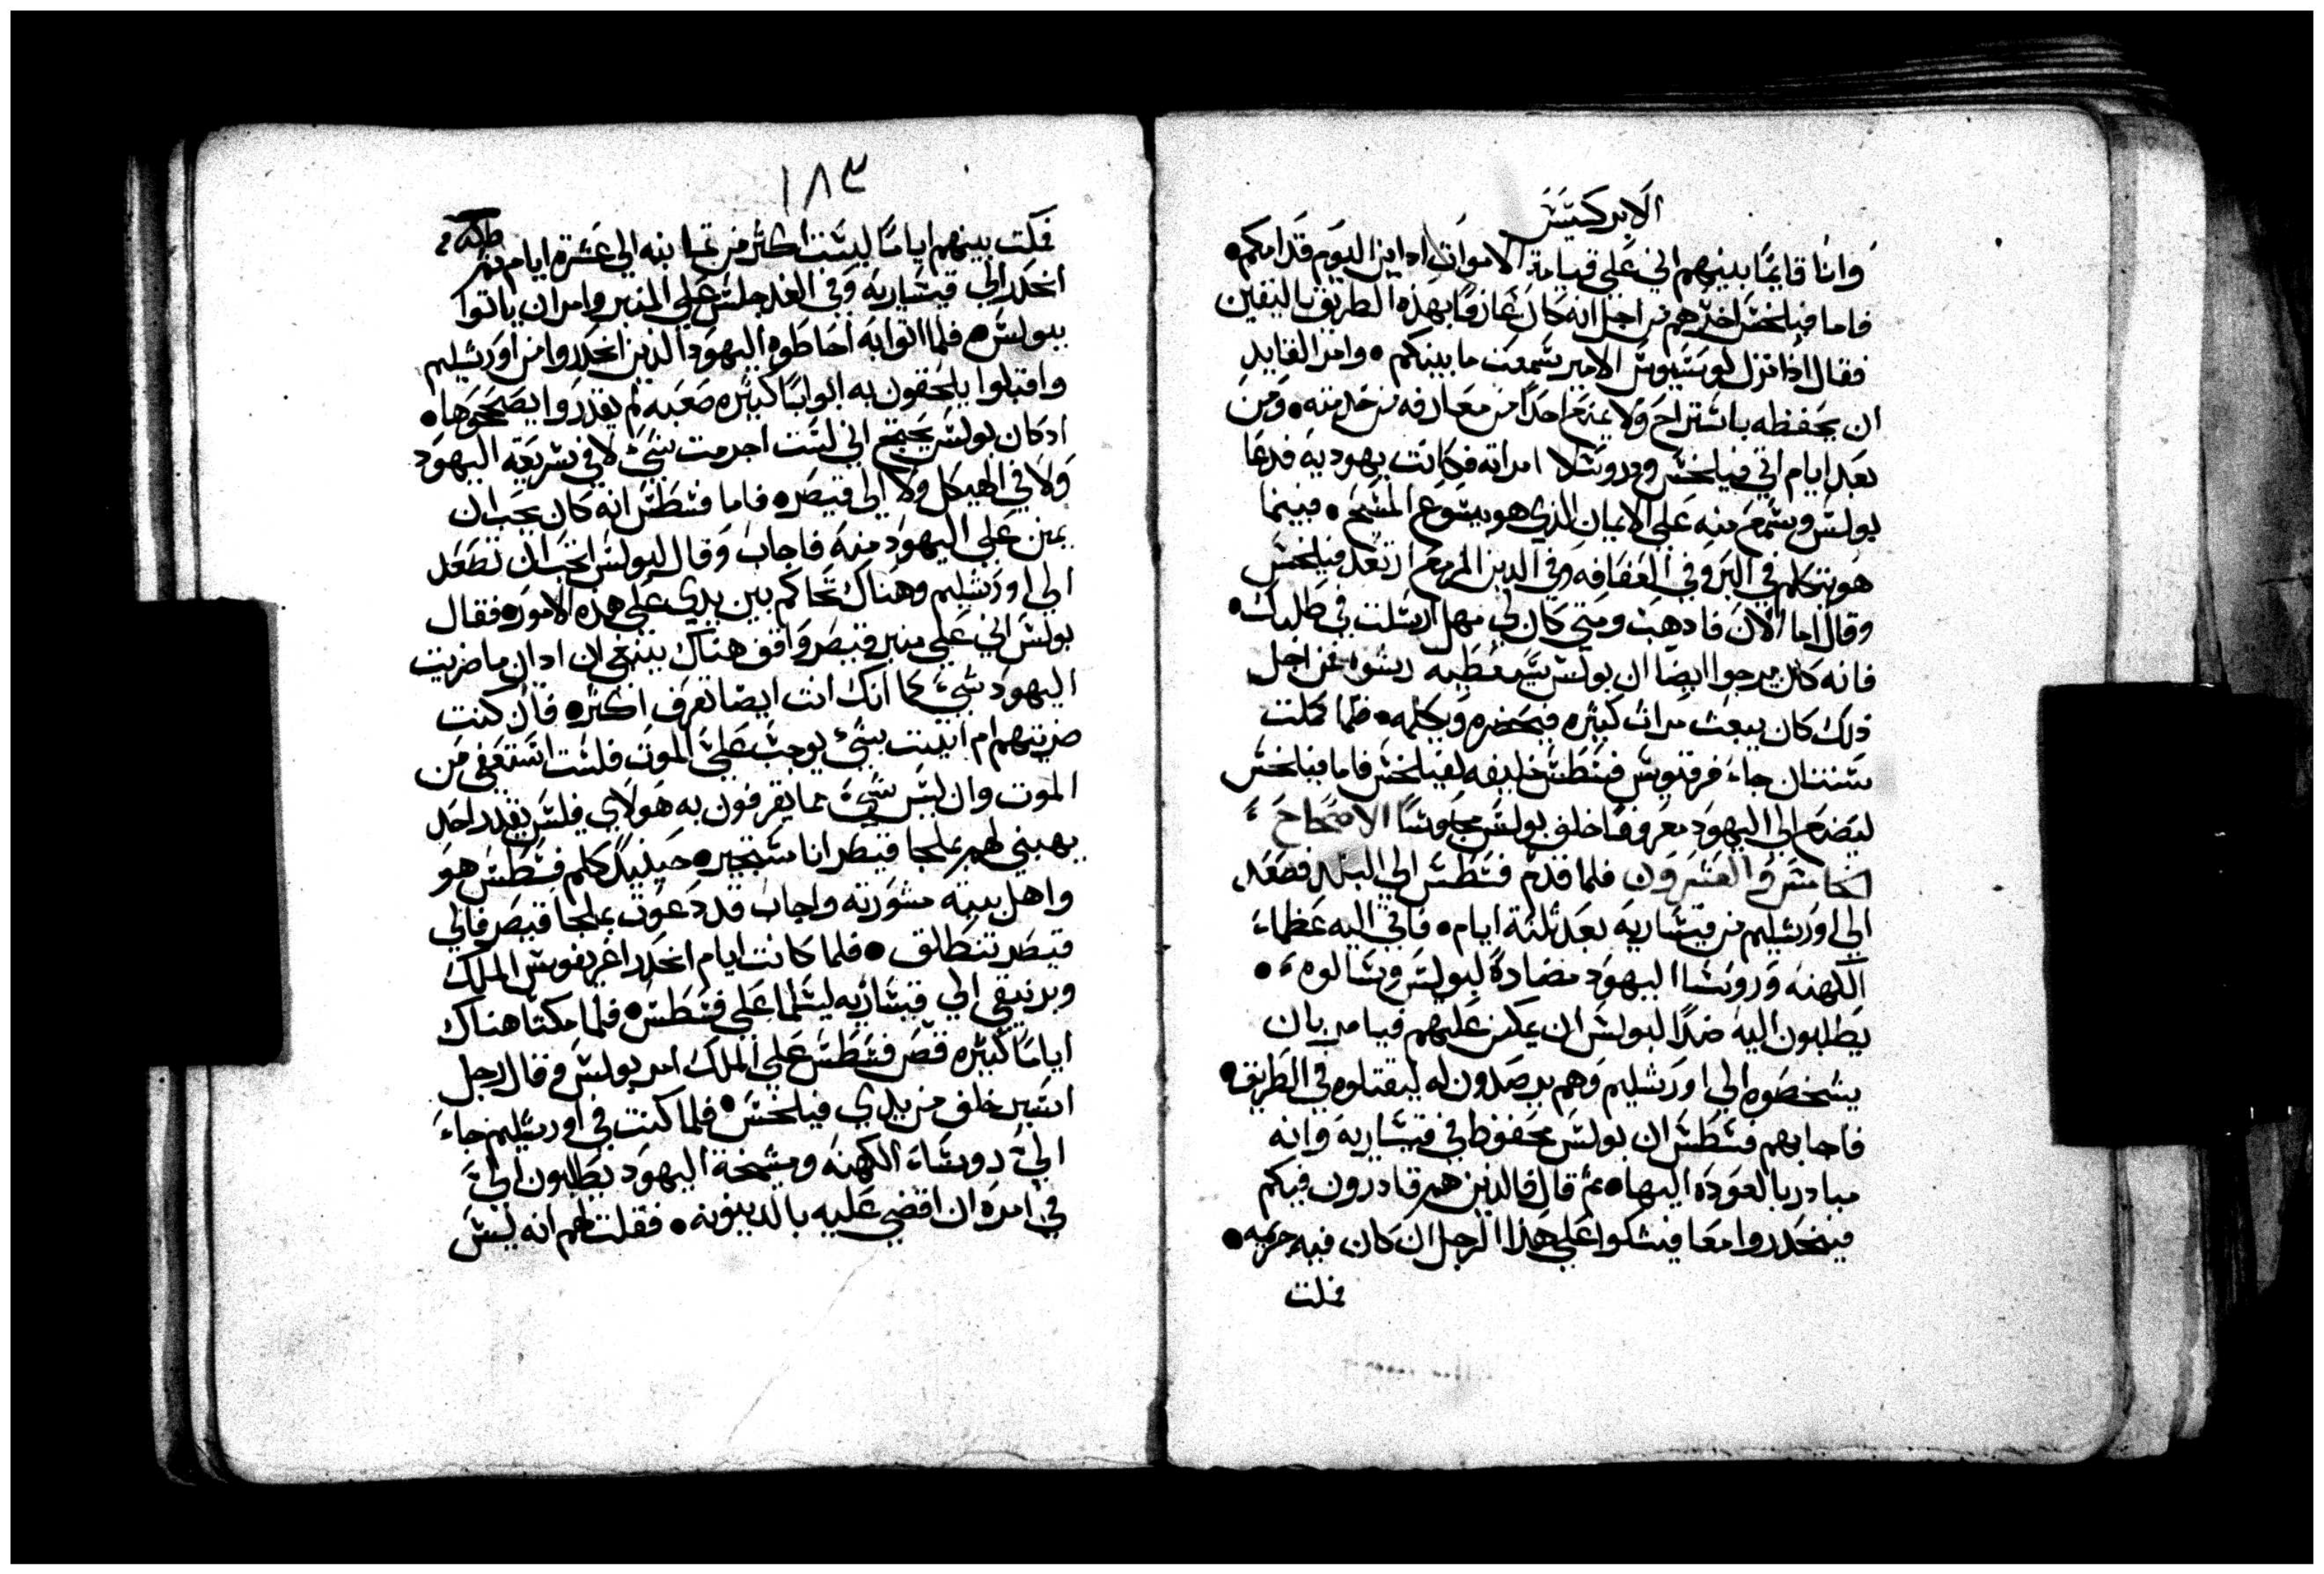 الابركسيس
وانا قايمًا بينهم اني على قيامة الاموات ادان اليوم قدامكم.
فاما فيلخس اخرهم من اجل انه كان عارفًا بهذه الطريق باليقين
فقال اذا نزل لوسيوس الامير سمعت ما بينكم. وامر القايد
ان يحفظه باستراح ولا يمنع احدًا من معارفه من خدمته. ومن
بعد ايام اتى فيلخس ودروسلا امراته فكانت يهودية فدعا
بولس وسمع منه على الايمان الذي هو بيسوع المسيح. فبينما
هو يتكلم في البر وفي العفافه وفي الدين المزمع ارتعد فيلخس
وقال اما الان فاذهب ومتى كان لي مهل ارسلت في طلبك.
فانه كان يرجوا ايضا ان بولس سيعطيه رشوه من اجل
ذلك كان يبعث مرات كثيره فيحضره ويكلمه. فلما كملت
سنتان جاء فرقيوس فسطس خليفه لفيلخس فاما فيلخس
ليصنع الى اليهود معروفا خلف بولس محبوسًا الاصحاح
الخامس والعشرون فلما قدم فسطس الى البلد فصعد
الى اورشليم من قيسارية بعد ثلثة ايام. فاتى اليه عظماء
الكهنه وروسا اليهود مضادةً لبولس وسالوه.
يطلبون اليه ضدًا لبولس ان يمكن عليهم فيامر بان
يشخصوه الى اورشليم وهم يرصدون له ليقتلوه في الطريق.
فاجابهم فسطس ان بولس محفوظ في قيسارية وانه
مبادر بالعوده اليها. ثم قال فالذين هم قادرون فيكم
فينحدروا معا فيشكوا على هذا الرجل ان كان فيه جريمه.
فملت
١٨٣
فمكث بينهم ايامًا ليست اكثر من ثمانيه الى عشرة ايام ثم
انحدر الى قيسارية وفي الغد جلس على المنبر وامر ان ياتوا
ببولس. فلما اتوا به احاطوه اليهود الذين انحدروا من اورشليم
واقبلوا يلحقون به ابوابًا كثيره صعبه لم يقدروا يصححوها.
اذ كان بولس يحتج اني لست اجرمت بشيء لا في شريعة اليهود
ولا في الهيكل ولا الى قيصر. فاما فسطس انه كان يحب ان
يمن على اليهود منه فاجاب وقال لبولس اتحب ان تصعد
الى اورشليم وهناك تحاكم بين يدي على هذه الامور. فقال
بولس اني على منبر قيصر واقف هناك ينبغي ان ادان ما ضريت
اليهود شيء كما انك انت ايضا تعرف اكثر. فان كنت
ضريتهم ام اتيت بشيء يوجب علي الموت فلست استعفي من
الموت وان ليس شيء مما يقرفون به هولاي فليس يقدر احد
يهبني لهم بملجا قيصر انا مستجير. حينيذ كلم فسطس هو
واهل بيته مشورته واجاب قد دعوت بملجا قيصر فالى
قيصر تنطلق. فلما كانت ايام انحدر اغريفوس الملك
وبرنيقي الى قيساريه ليسلما على فسطس. فلما مكثا هناك
ايامًا كثيره قص فسطس على الملك امر بولس وقال رجل
اسير خلف من يدي فيلخس. فلما كنت في اورشليم جاء
الي روساء الكهنه ومشيخة اليهود يطلبون الي
في امره ان اقضي عليه بالدينونه. فقلت لهم انه ليس